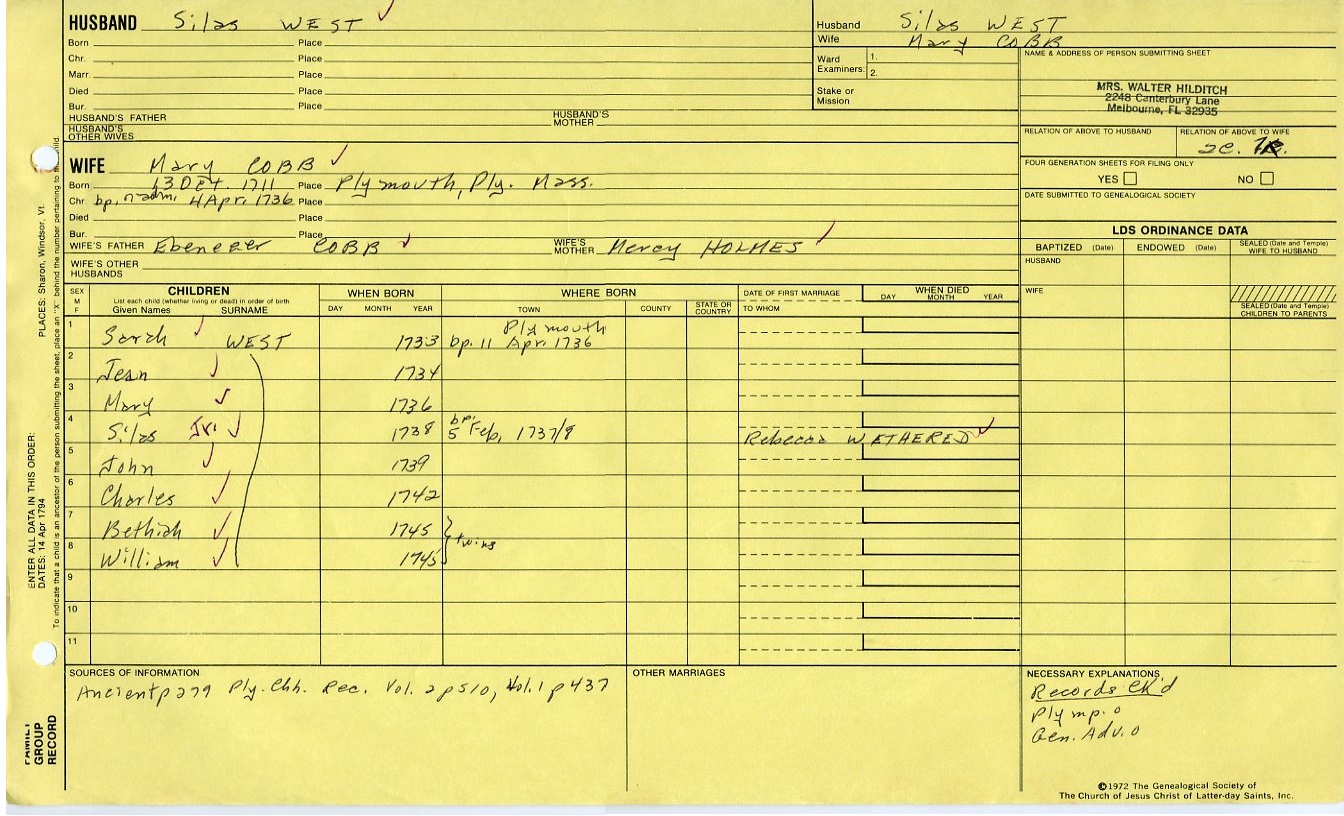 HUSBAND Silas WEST
Born Place
Chr. Place
Marr. Place
Died Place
Bur. Place
HUSBAND'S FATHER HUSBAND'S MOTHER
HUSBAND'S OTHER WIVES
Husband Silas WEST
Wife Mary COBB
Ward Examiners: 1.
2.
Stake or Mission
NAME & ADDRESS OF PERSON SUBMITTING SHEET
MRS. WALTER HILDITCH
2248 Canterbury Lane
Melbourne, FL 32935
RELATION OF ABOVE TO HUSBAND RELATION OF ABOVE TO WIFE
2c.
FOUR GENERATION SHEETS FOR FILING ONLY
YES NO
DATE SUBMITTED TO GENEALOGICAL SOCIETY
WIFE Mary COBB
Born 13 Oct. 1711 Place Plymouth, Ply. Mass.
Chr. bp. n adm. 4 Apr. 1736 Place
Died Place
Bur. Place
WIFE'S FATHER Ebenezer COBB WIFE'S MOTHER Mercy HOLMES
WIFE'S OTHER HUSBANDS
LDS ORDINANCE DATA
BAPTIZED (Date) ENDOWED (Date) SEALED (Date and Temple) WIFE TO HUSBAND
HUSBAND
WIFE
SEALED (Date and Temple) CHILDREN TO PARENTS
SEX M F
CHILDREN
List each child (whether living or dead) in order of birth
Given Names SURNAME
WHEN BORN
DAY MONTH YEAR
WHERE BORN
TOWN COUNTY STATE OR COUNTRY
DATE OF FIRST MARRIAGE
TO WHOM
WHEN DIED
DAY MONTH YEAR
1 Sarah WEST 1733 Plymouth bp. 11 Apr. 1736
2 Jean 1734
3 Mary 1736
4 Silas Jr. 1738 bp. 5 Feb. 1737/8 Rebecca WETHERED
5 John 1739
6 Charles 1742
7 Bethiah 1745 twins
8 William 1745
9
10
11
SOURCES OF INFORMATION
Ancient p 279 Ply. Chh. Rec. Vol. 2 p 510, Vol. 1 p 437
OTHER MARRIAGES
NECESSARY EXPLANATIONS
Records ck'd
Plymp. o
Gen. Adv. o
©1972 The Genealogical Society of
The Church of Jesus Christ of Latter-day Saints, Inc.
ENTER ALL DATA IN THIS ORDER:
DATES: 14 Apr 1794
PLACES: Sharon, Windsor, Vt.
To indicate that a child is an ancestor of the person submitting the sheet, place an "X" behind the number pertaining to child.
FAMILY
GROUP
RECORD